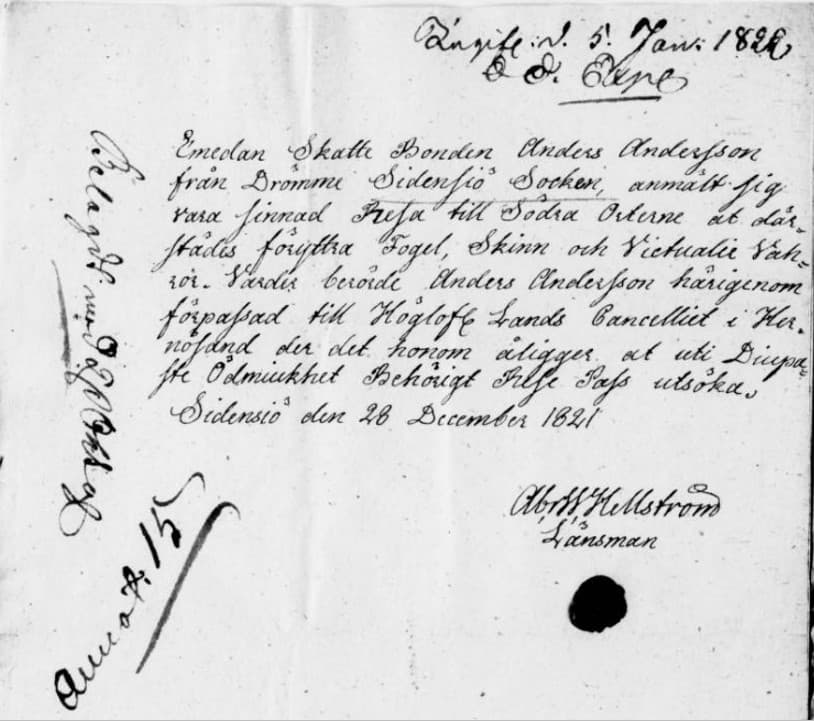 d. 5. Jan: 1822
Emedan Skatte Bonden Anders Andersson
från Drömme Sidensiö Socken, anmält sig
vara sinnad Resa till Södra Orterne at där-
städes föryttra Fogel, Skinn och Victualie Vah-
ror. Varder berörde Anders Andersson härigenom
förpassad till Höglofl Lands Cancelliet i Her-
nösand der det honom åligger at uti Diupa-
ste Ödmiukhet Behörigt Rese Pass utsöka.
Sidensiö den 28 December 1821
Abr W Hellström
Länsman
Belagdt med
Annot. 15